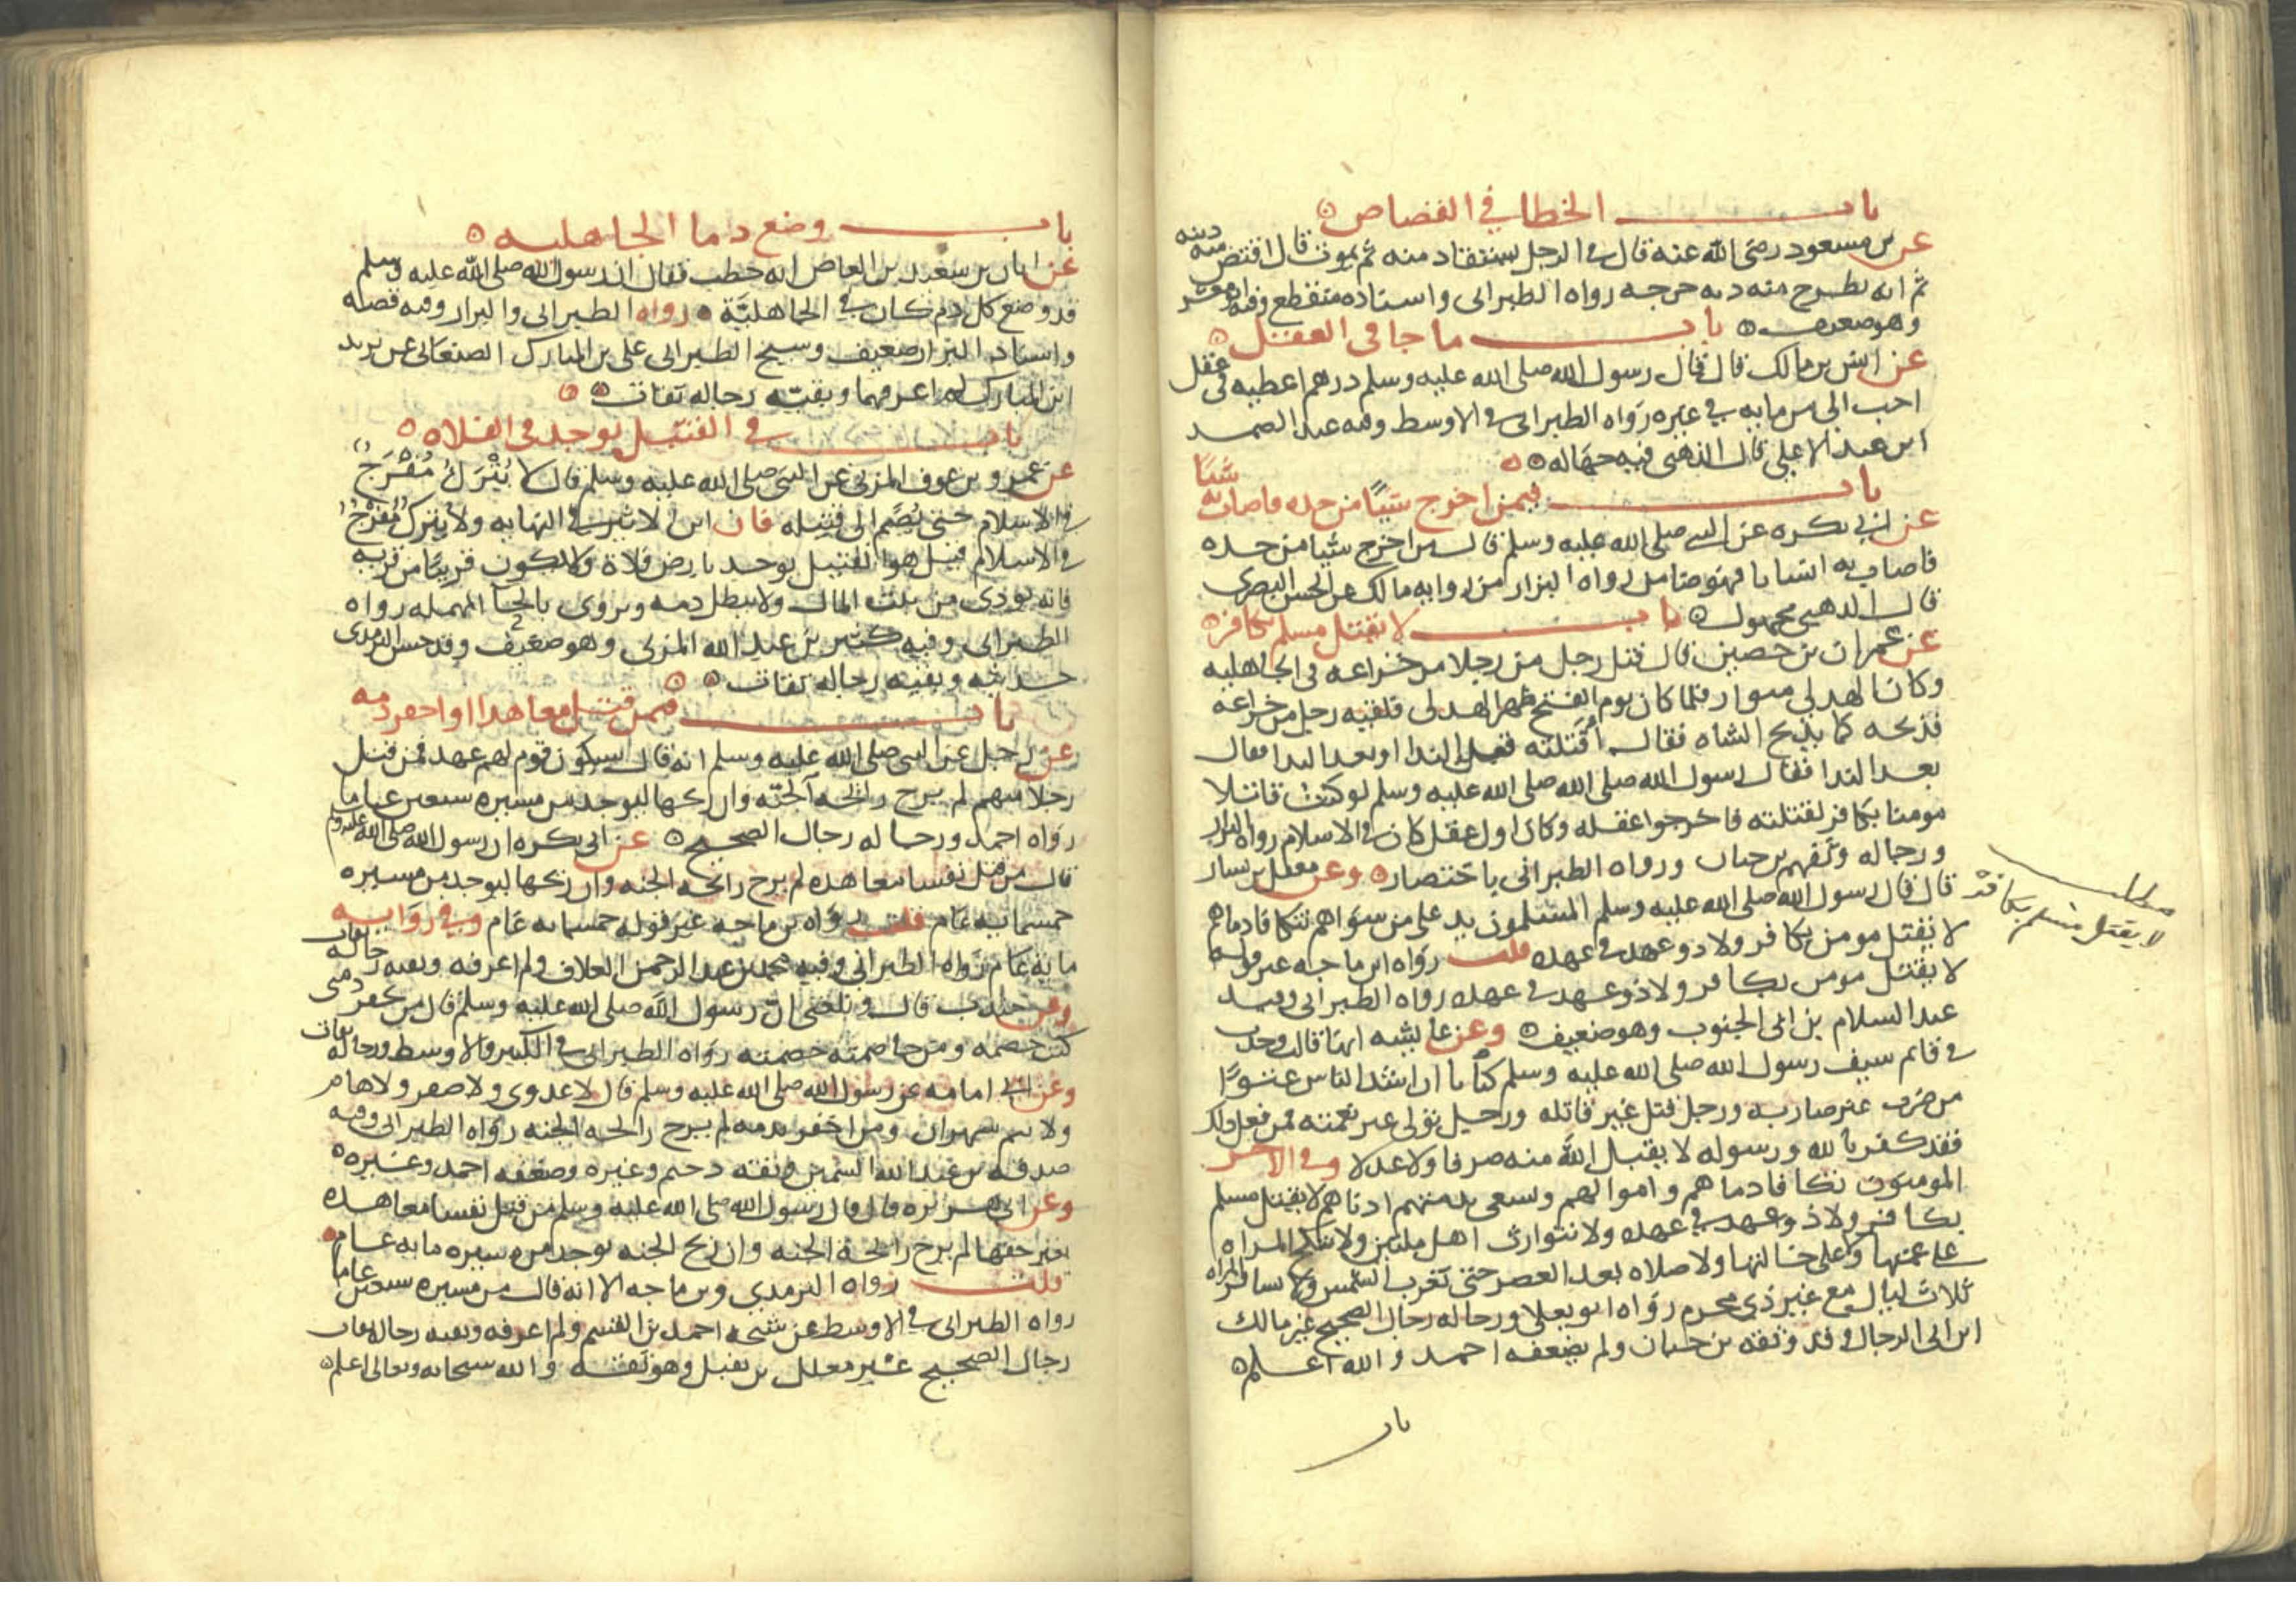 باب الخطا في القصاص
عن بن مسعود رضي الله عنه قال في الرجل يستقاد منه ثم يموت قال اقتص منه ديته
ثم انه يطرح منه دية جرحه رواه الطبراني واسناده منقطع وفيه ابو معشر
وهو ضعيف باب ما جا في العقل
عن انس بن مالك قال قال رسول الله صلى الله عليه وسلم درهم اعطيه في عقل
احب الي من مايه في غيره رواه الطبراني في الاوسط وفيه عبد الصمد
ابن عبد الاعلى قال الذهبي فيه جهاله
باب فيمن اخرج شيا من حده فاصاب به شيا
عن ابي بكره عن النبي صلى الله عليه وسلم قال من اخرج شيا من حده
فاصاب به انسانا فهو ضامن رواه البزار من روايه مالك عن الحسن البصري
قال الذهبي مجهول باب لا يقتل مسلم بكافر
عن عمران بن حصين قال قتل رجل من رجلا من خزاعه في الجاهليه
وكان الهذلي متوار فلما كان يوم الفتح ظهر الهذلي فلقيه رجل من خزاعه
فذبحه كما يذبح الشاه فقال اقتلته قبل الندا او بعد الندا فقال
بعد الندا فقال رسول الله صلى الله صلى الله عليه وسلم لو كنت قاتلا
مومنا بكافر لقتلته فاخرجوا عقله وكان اول عقل كان في الاسلام رواه البزار
ورجاله وثقهم بن حبان ورواه الطبراني باختصار وعن معقل بن يسار
قال قال رسول الله صلى الله عليه وسلم المسلمون يد على من سواهم تتكافا دماهم
مطلب لا يقتل مسلم بكافر
لا يقتل مومن بكافر ولا ذو عهد في عهده قلت رواه ابن ماجه غير قوله
لا يقتل مومن بكافر ولا ذو عهد في عهده رواه الطبراني وفيه
عبد السلام بن ابي الجنوب وهو ضعيف وعن عايشه انها قالت وجدت
في قائم سيف رسول الله صلى الله عليه وسلم كتابا ان اشد الناس عتوا
من ضرب غير ضاربه ورجل قتل غير قاتله ورجل تولى غير نعمته فمن فعل ذلك
فقد كفر بالله ورسوله لا يقبل الله منه صرفا ولا عدلا وفي الاخر
المومنون تتكافا دماهم واموالهم ويسعى بذمتهم ادناهم لا يقتل مسلم
بكافر ولا ذو عهد في عهده ولا نتوارث اهل ملتين ولا تنكح المراه
على عمتها ولا على خالتها ولا صلاه بعد العصر حتى تغرب الشمس ولا تسافر المراه
ثلاث ليال مع غير ذي محرم رواه ابو يعلى ورجاله رجال الصحيح غير مالك
ابن ابي الرجال وقد وثقه بن حبان ولم يضعفه احمد والله اعلم
باب
باب وضع دما الجاهليه
عن ابان بن سعيد بن العاص انه خطب فقال ان رسول الله صلى الله عليه وسلم
قد وضع كل دم كان في الجاهلية رواه الطبراني والبزار وفيه قصه
واسناد البزار ضعيف وشيخ الطبراني علي بن المبارك الصنعاني عن يزيد
ابن المبارك لم اعرفهما وبقية رجاله ثقات
باب في القتيل يوجد في الفلاه
عن عمرو بن عوف المزني عن النبي صلى الله عليه وسلم قال لا يُتْرَكُ مُفْرَجٌ
في الاسلام حتى يضم الى قبيله قال ابن الاثير في النهايه ولا يترك مفرج
في الاسلام قيل هو القتيل يوجد بارض فلاة ولا يكون قريبا من قريه
فانه يودى من بيت المال ولا يبطل دمه ويروى بالحا المهمله رواه
الطبراني وفيه كثير بن عبد الله المزني وهو ضعيف وقد حسن الترمذي
حديثه وبقيه رجاله ثقات
باب فيمن قتل معاهدا او اخفر ذمه
عن رجل عن النبي صلى الله عليه وسلم انه قال سيكون قوم لهم عهد فمن قتل
رجلا منهم لم يرح رائحة الجنه وان ريحها ليوجد من مسيره سبعين عاما
رواه احمد ورجاله رجال الصحيح عن ابي بكره ان رسول الله صلى الله عليه وسلم
قال من قتل نفسا معاهده لم يرح رائحة الجنه وان ريحها ليوجد من مسيره
خمسمايه عام قلت رواه بن ماجه غير قوله خمسمايه عام وفي روايه
مايه عام رواه الطبراني وفيه محمد بن عبد الرحمن العلاف ولم اعرفه وبقيه رجاله ثقات
وعن جندب قال وبلغني ان رسول الله صلى الله عليه وسلم قال من يخفر ذمتي
كنت خصمه ومن خاصمته خصمته رواه الطبراني في الكبير والاوسط ورجاله ثقات
وعن ابي امامه عن رسول الله صلى الله عليه وسلم قال لا عدوى ولا صفر ولا هام
ولا يتم شهران ومن اخفر بذمه لم يرح رائحة الجنه رواه الطبراني وفيه
صدقه بن عبد الله السمين وثقه دحيم وغيره وضعفه احمد وغيره
وعن ابي هريره قال قال رسول الله صلى الله عليه وسلم من قتل نفسا معاهده
بغير حقها لم يرح رائحة الجنه وان ريح الجنه يوجد من مسيره مايه عام
قلت رواه الترمدي وبن ماجه الا انه قال من مسيره سبعين عاما
رواه الطبراني في الاوسط عن شيخه احمد بن القسم ولم اعرفه وبقيه رجاله ثقات
رجال الصحيح غير معلل بن نفيل وهو ثقه والله سبحانه وتعالى اعلم